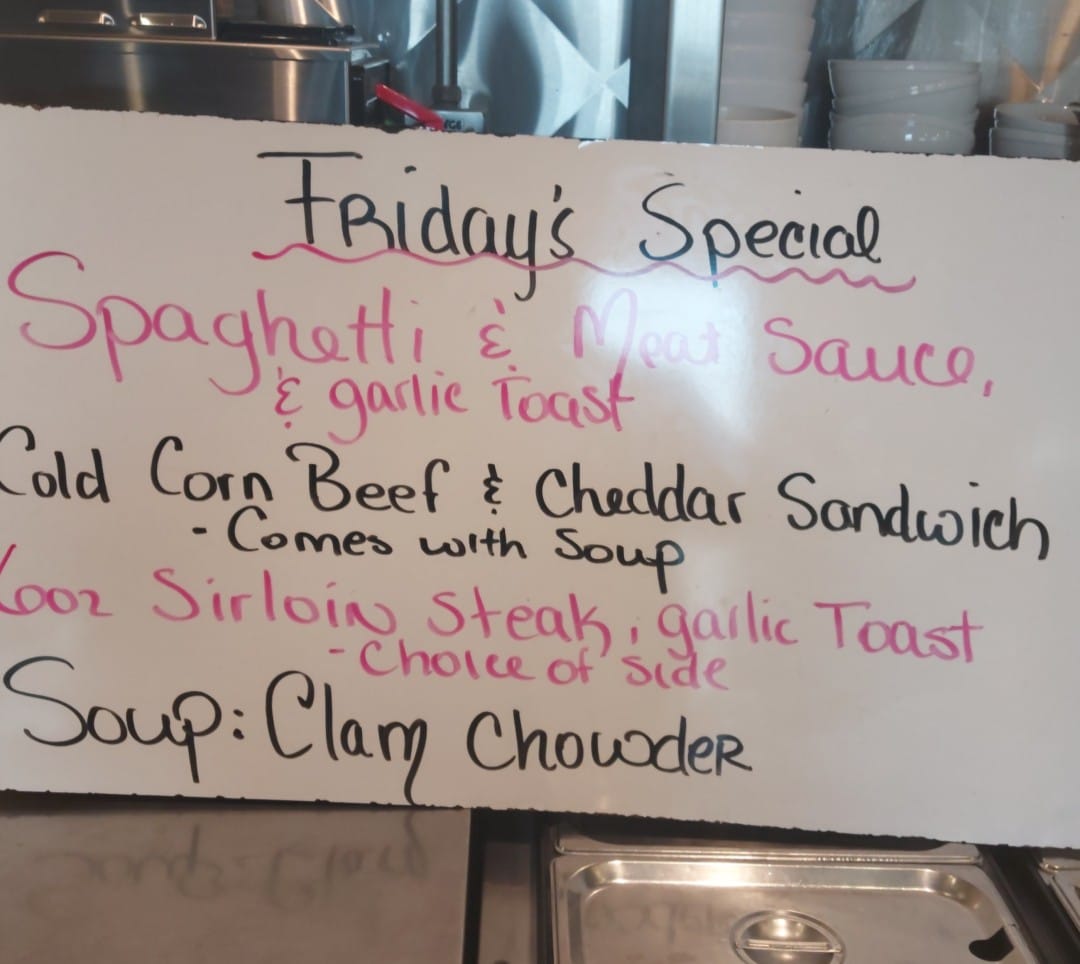 Friday's Special
Spaghetti & Meat Sauce,
& garlic Toast
Cold Corn Beef & Cheddar Sandwich
- Comes with Soup
6oz Sirloin Steak, garlic Toast
- Choice of side
Soup: Clam Chowder